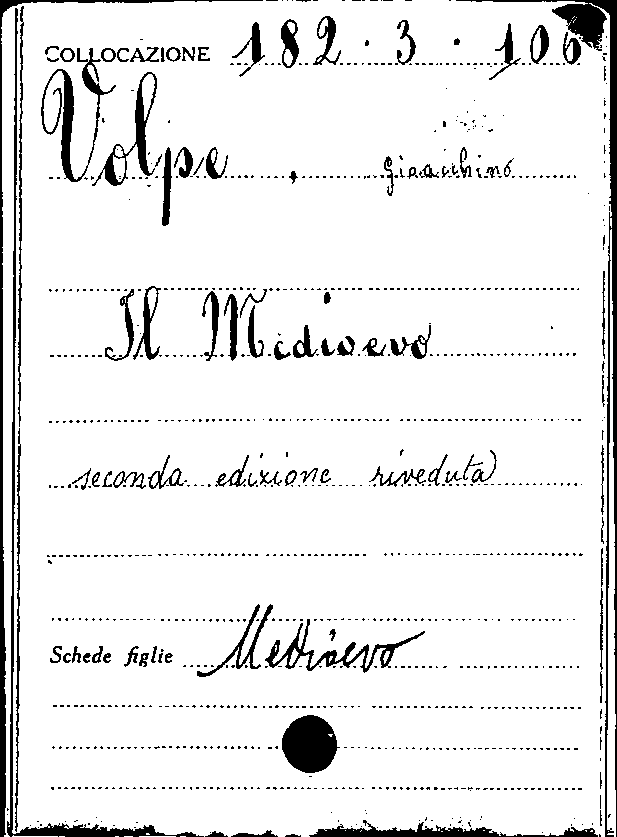 COLLOCAZIONE 182 · 3 · 106
Volpe, Gioacchino
Il Medioevo
seconda edizione riveduta
Schede figlie Medioevo